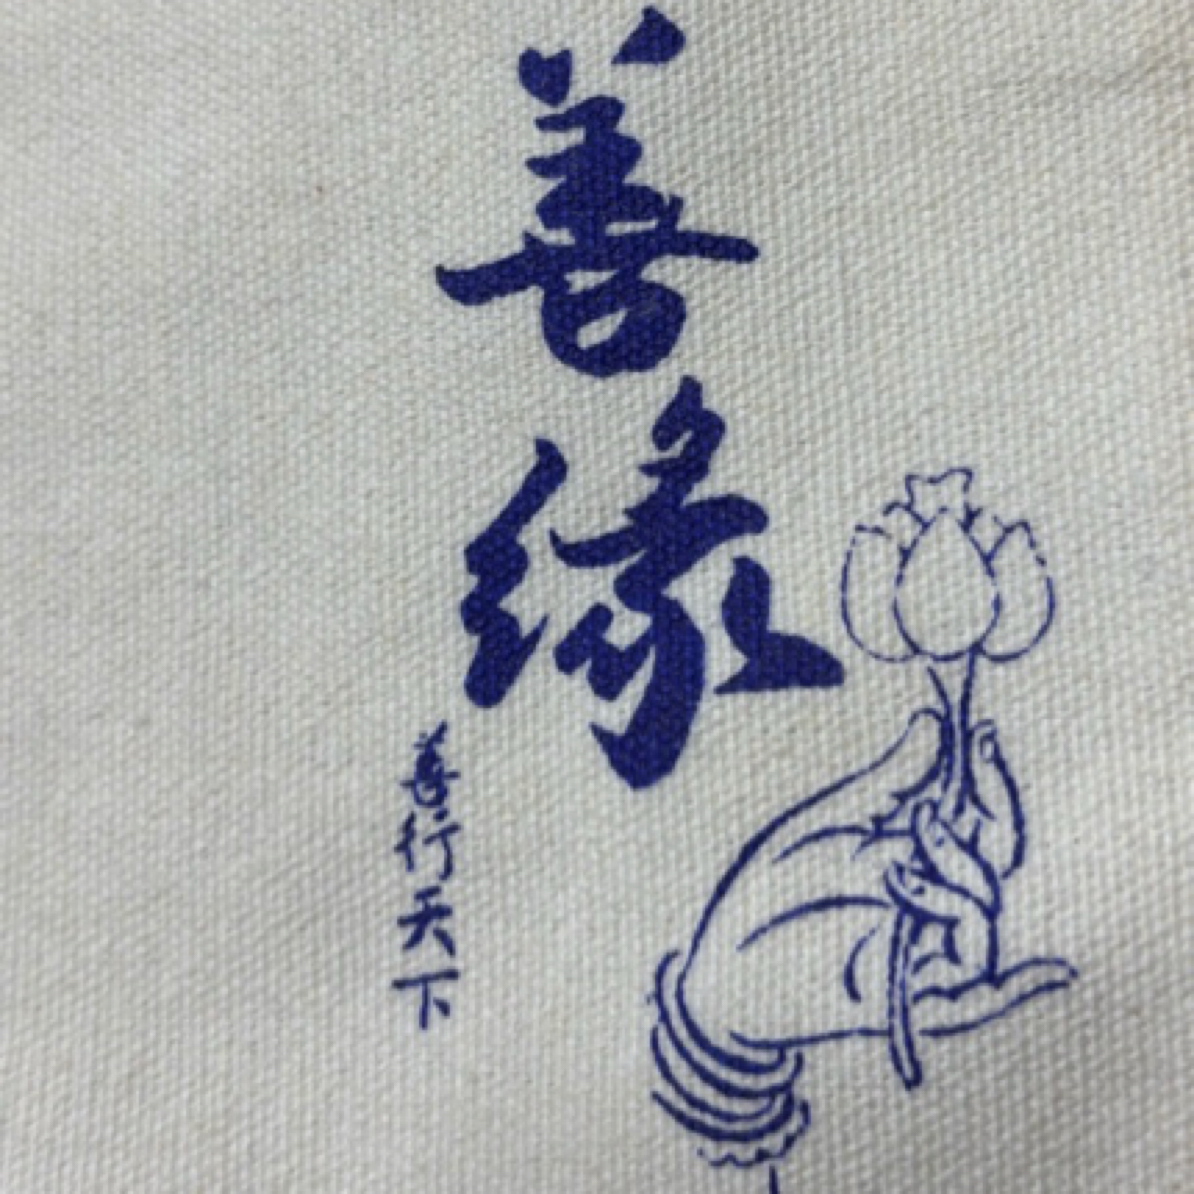 善缘
善行天下